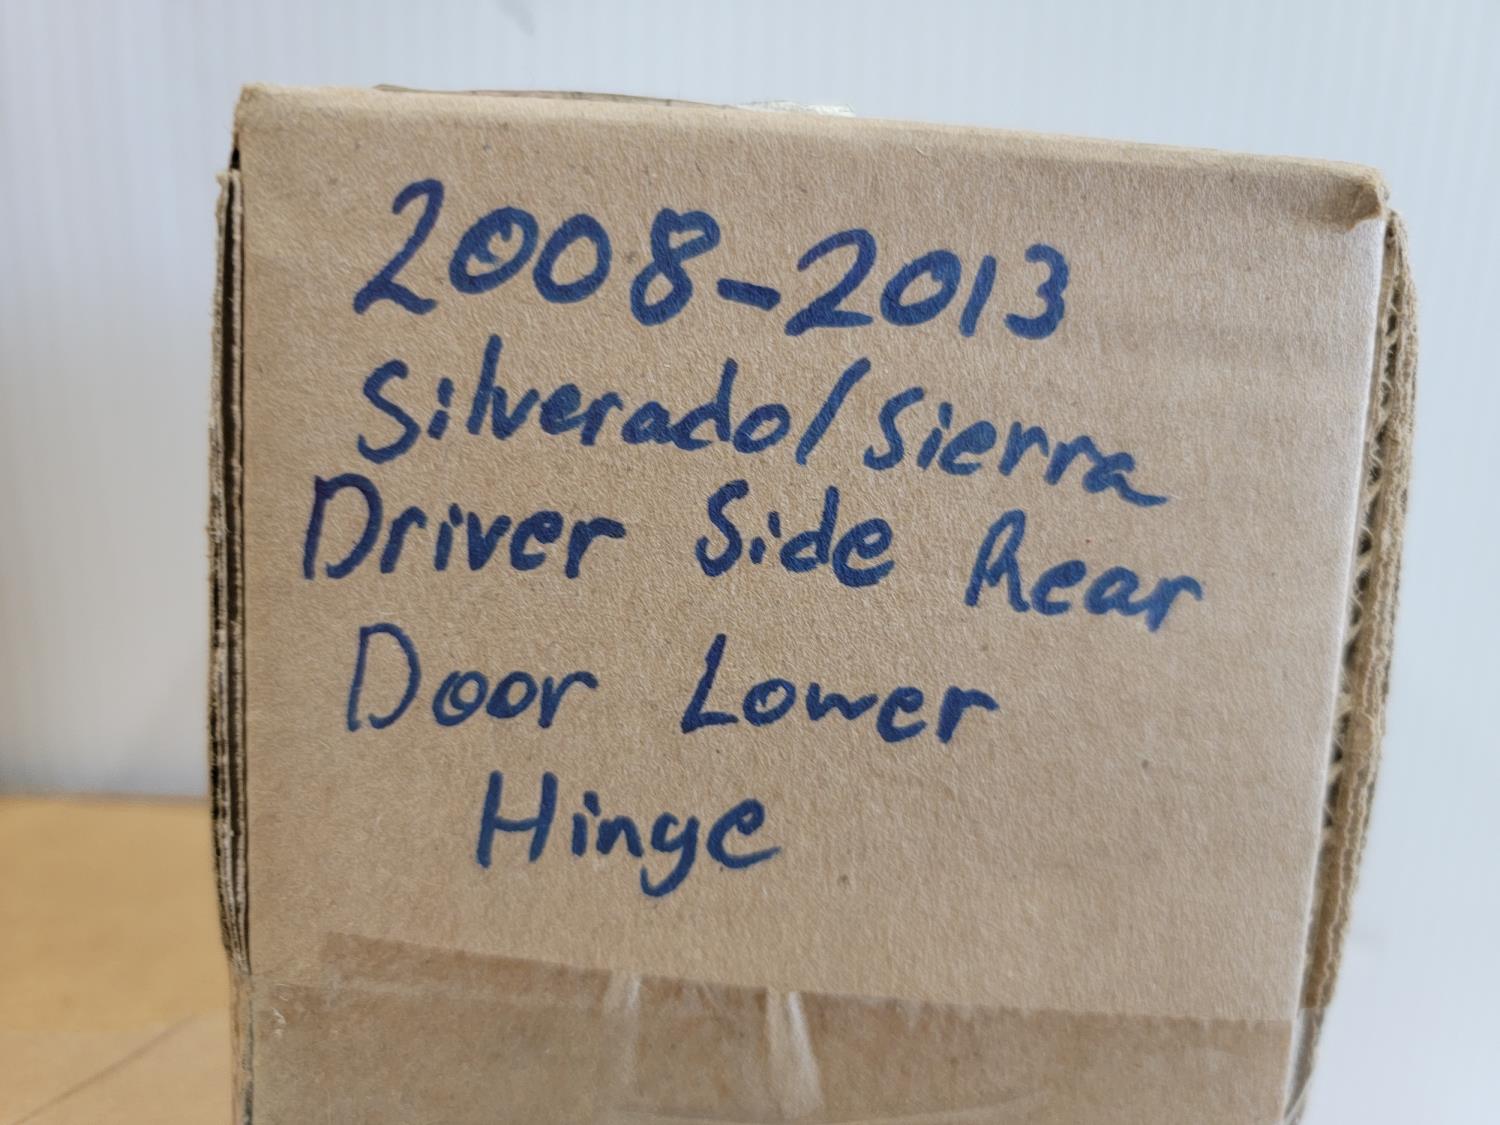 2008-2013
Silverado/Sierra
Driver Side Rear
Door Lower
Hinge